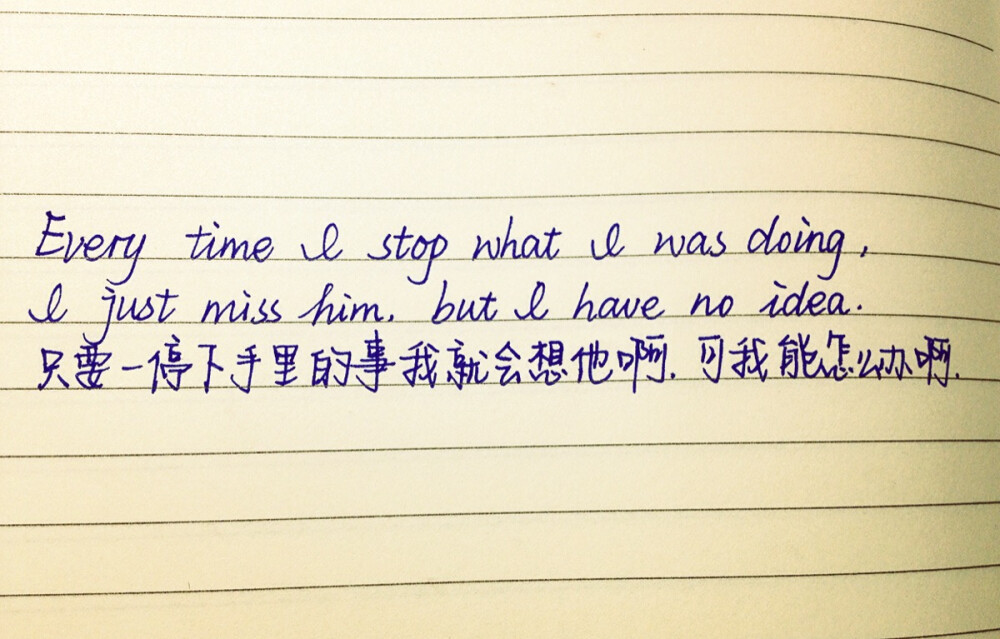 Every time I stop what I was doing,
I just miss him. but I have no idea.
只要一停下手里的事我就会想他啊.可我能怎么办啊.